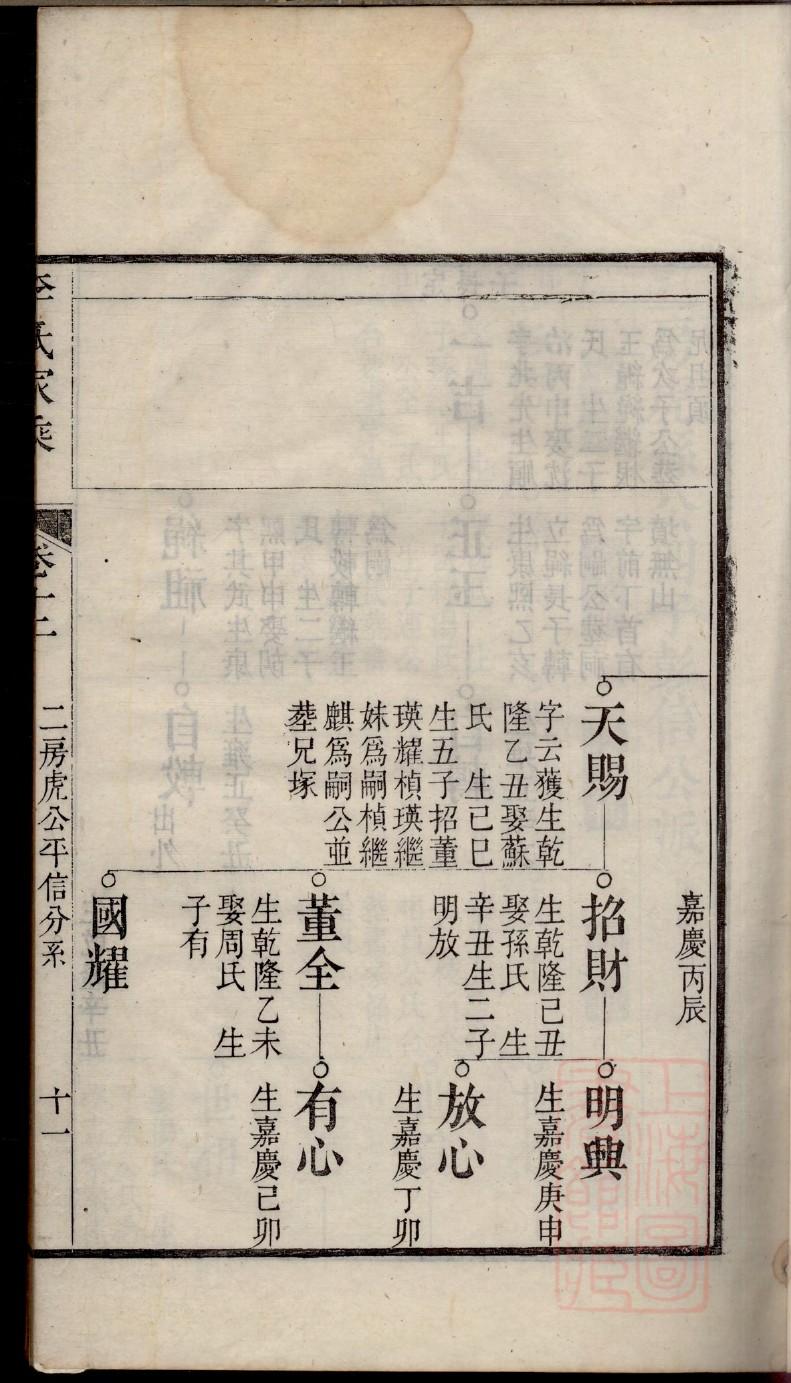 嘉慶丙辰
天賜
字云獲生乾
隆乙丑娶蘇
氏 生己巳
生五子招董
瑛耀楨瑛繼
妹爲嗣楨繼
麒爲嗣公並
塟兄塚
招財
生乾隆己丑
娶孫氏 生
辛丑生二子
明放
明興
生嘉慶庚申
放心
生嘉慶丁卯
董全
生乾隆乙未
娶周氏 生
子有
有心
生嘉慶己卯
國耀
李氏家乘
卷十二
二房虎公平信分系
十一
上海圖